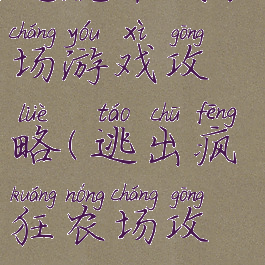 chǎng yóu xì gōng
场游戏攻
lüè táo chū fēng
略(逃出疯
kuáng nóng chǎng gōng
狂农场攻